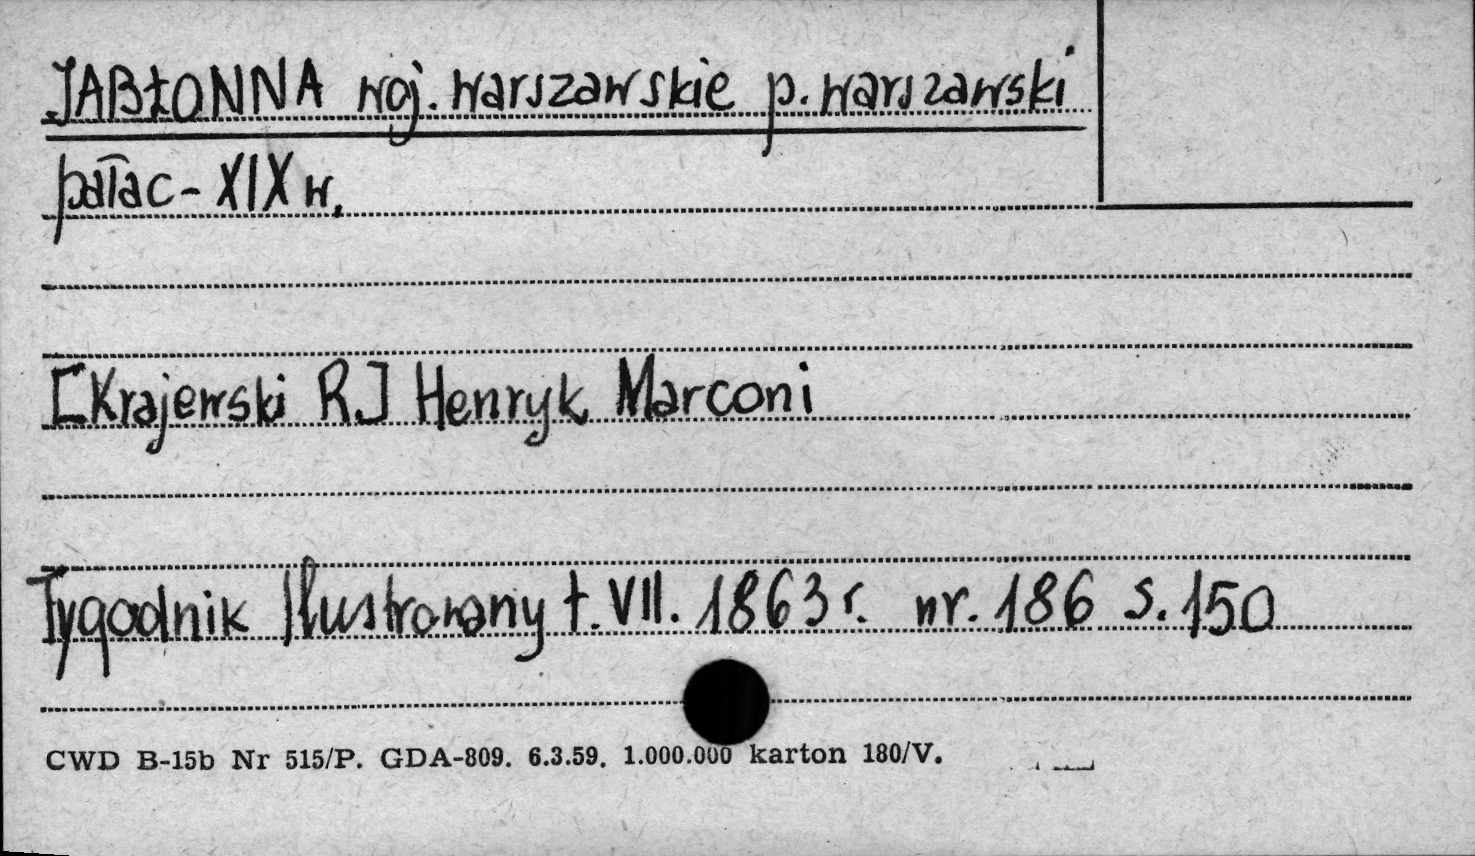 JABŁONNA woj. warszawskie p. warszawski
pałac - XIX w.
[Krajewski R.] Henryk Marconi
Tygodnik Ilustrowany t. VII. 1863 r. nr. 186 s. 150
CWD B-15b Nr 515/P. GDA-809. 6.3.59. 1.000.000 karton 180/V.